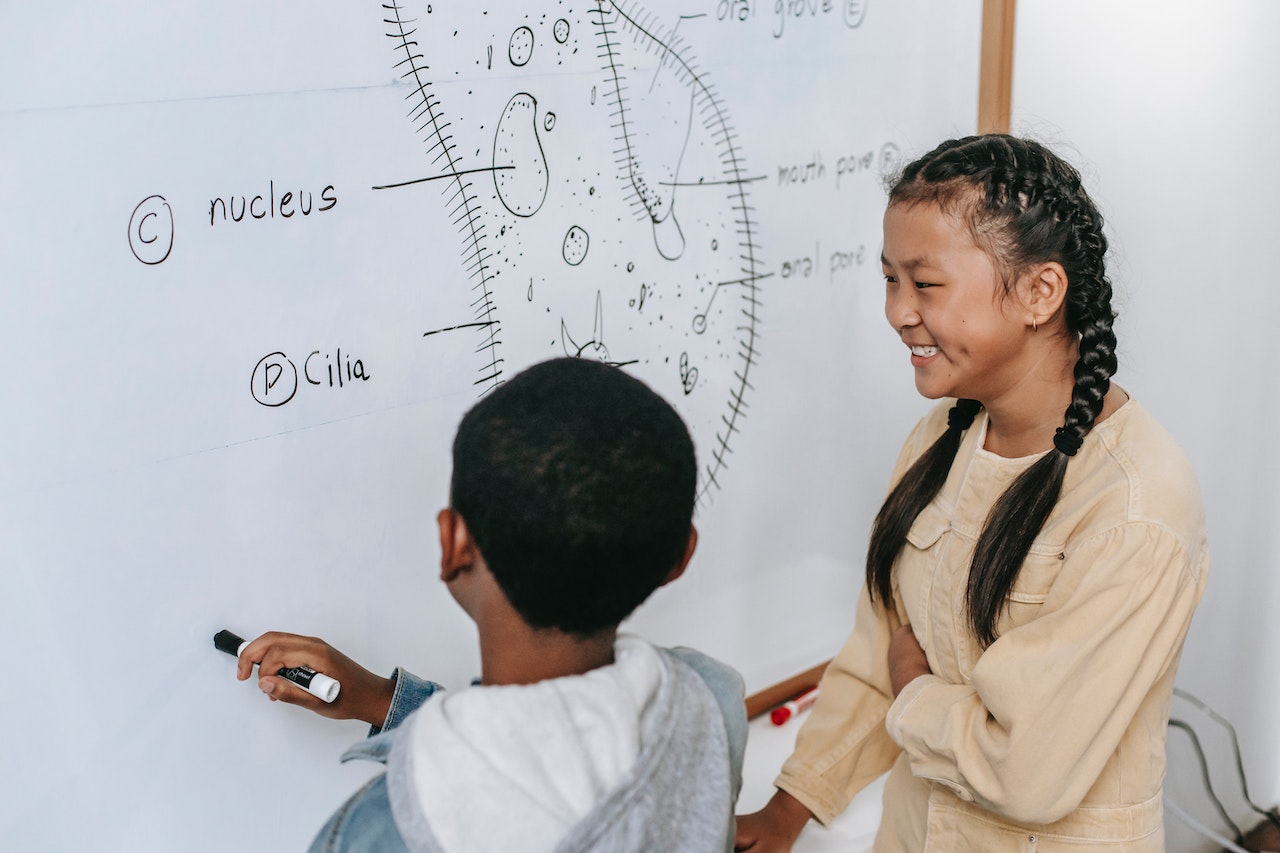 oral grove E
C nucleus
mouth pore
anal pore
D Cilia